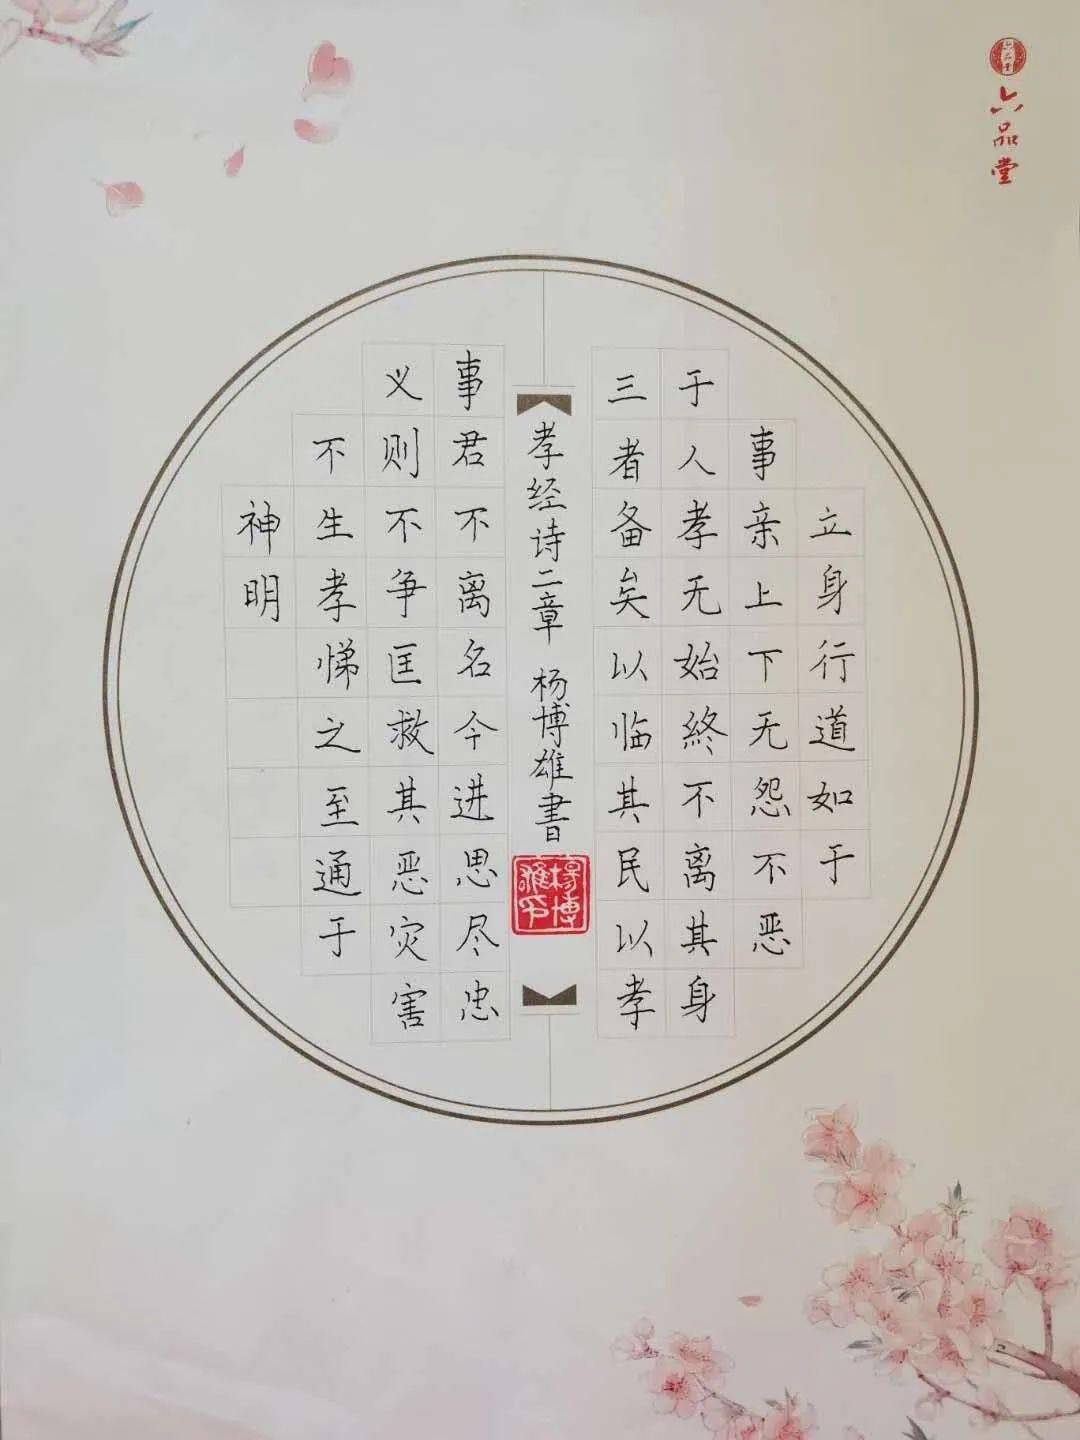 六品堂
六品堂
立身行道如于
事亲上下无怨不恶
于人孝无始終不离其身
三者备矣以临其民以孝
孝经诗二章 杨博雄書
杨博雄印
事君不离名今进思尽忠
义则不争匡救其恶灾害
不生孝悌之至通于
神明